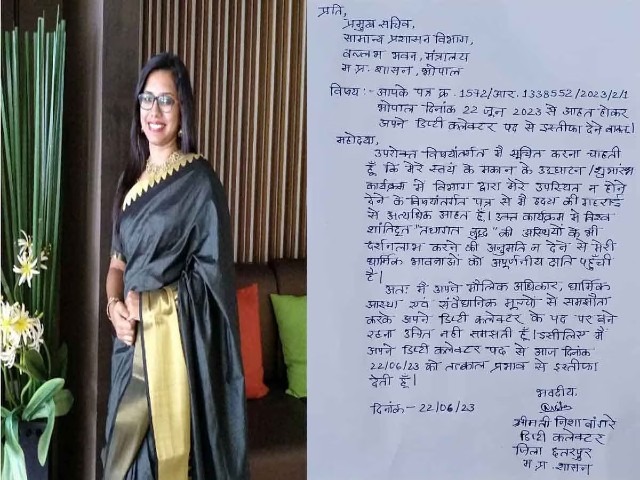 प्रति,
प्रमुख सचिव,
सामान्य प्रशासन विभाग,
वल्लभ भवन, मंत्रालय
म.प्र. शासन, भोपाल
विषय:- आपके पत्र क्र. 1572/आर. 1338552/2023/2/1
भोपाल दिनांक 22 जून 2023 से आहत होकर
अपने डिप्टी कलेक्टर पद से इस्तीफा देने बाबत।
महोदया,
उपरोक्त विषयांतर्गत मैं सूचित करना चाहती
हूँ कि मेरे स्वयं के मकान के उद्घाटन /शुभारंभ
कार्यक्रम में विभाग द्वारा मेरे उपस्थित न होने
देने के विषयांतर्गत पत्र से मैं हृदय की गहराई
से अत्यधिक आहत हूँ। उक्त कार्यक्रम में विश्व
शांतिदूत "तथागत बुद्ध" की अस्थियों के भी
दर्शनलाभ करने की अनुमति न देने से मेरी
धार्मिक भावनाओं को अपूर्णनीय क्षति पहुँची
है।
अतः मैं अपने मौलिक अधिकार, धार्मिक
आस्था एवं संवैधानिक मूल्यों से समझौता
करके अपने डिप्टी कलेक्टर के पद पर बने
रहना उचित नहीं समझती हूँ। इसीलिए मैं
अपने डिप्टी कलेक्टर पद से आज दिनांक
22/06/23 को तत्काल प्रभाव से इस्तीफा
देती हूँ।
भवदीय,
दिनांक- 22/06/23
श्रीमती निशा बांगरे
डिप्टी कलेक्टर
जिला छतरपुर
म.प्र. शासन